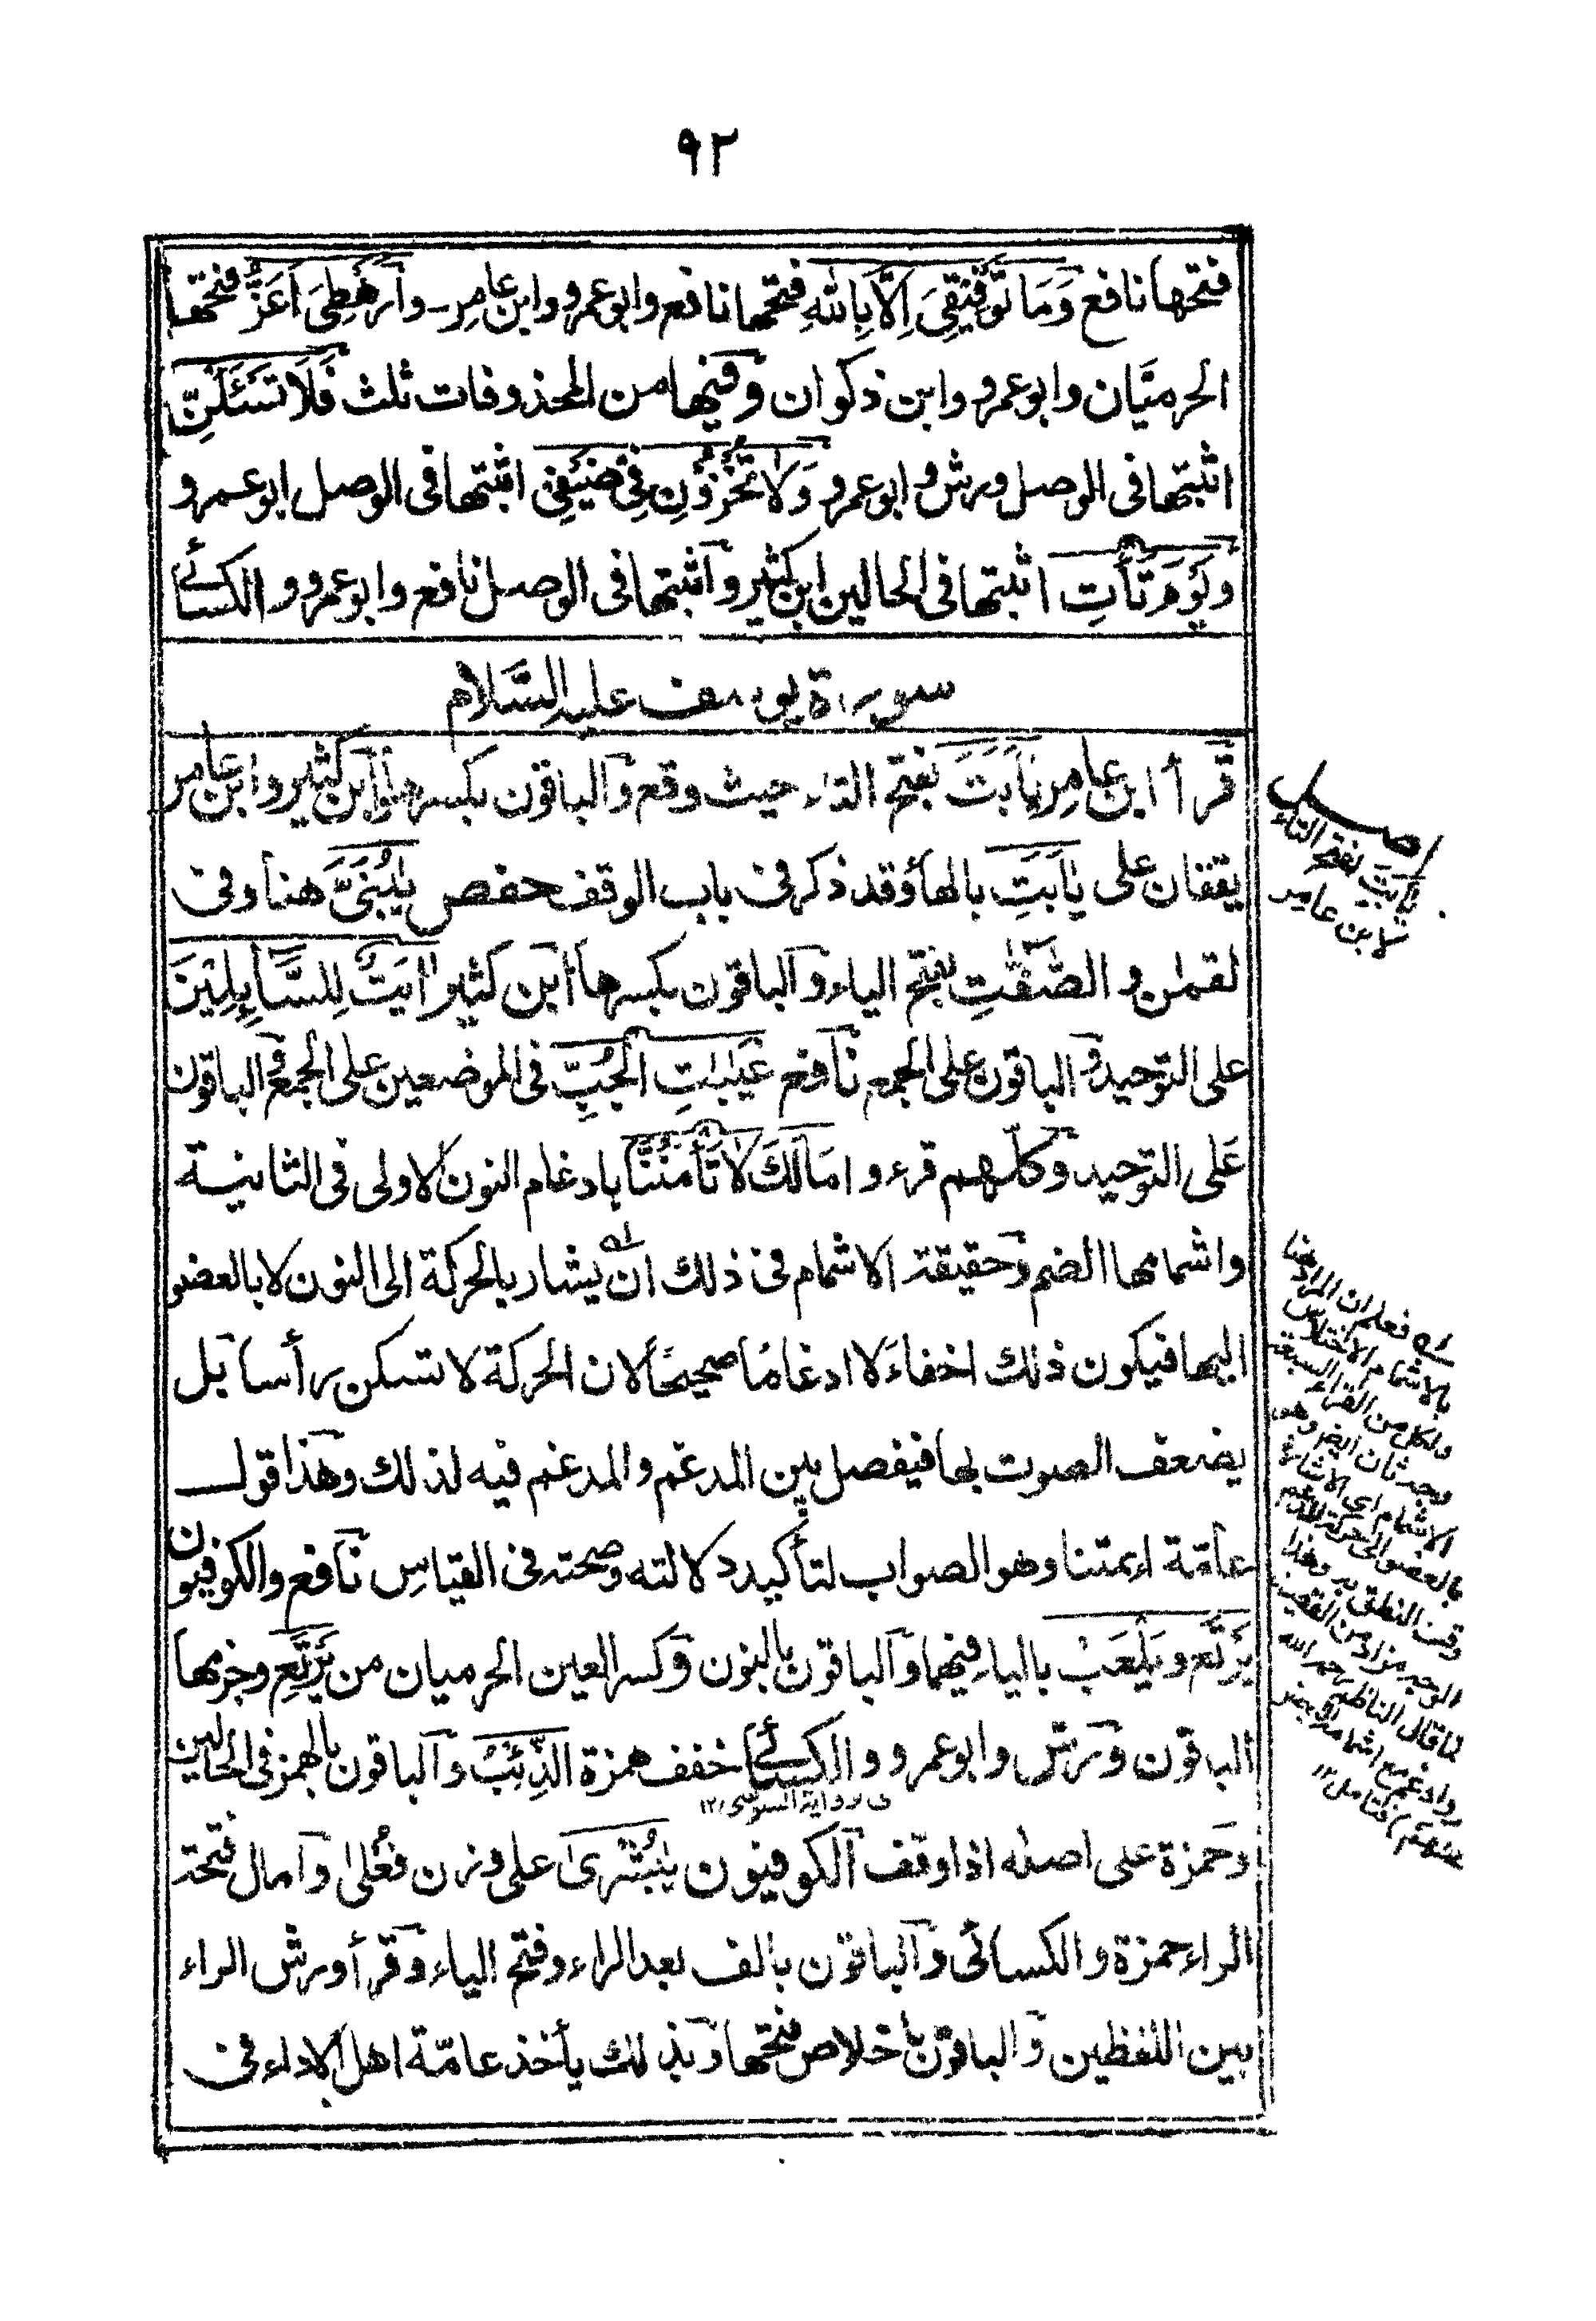 ٩٢
فتحها نافع وَمَا تَوْفِيْقِىَ اِلَّا بِاللهِ فتحها نافع وابو عمرو وابن عامر۔ وأرَهْطِىَ اَعَزُّ فتحها
الحرميّان وابو عمرو وابن ذكوان وفيها من المحذوفات ثلث فَلَا تَسْئَلَنِّ
اثبتها فى الوصل ورش و ابو عمرو وَلَا تُخْزُوْنِ فِىْ ضَيْفِىْ اثبتها فى الوصل ابو عمرو
وَيَوْمَ تَأْتِ اثبتها فى الحالين ابن كثير واثبتها فى الوصل نافع وابو عمرو والكسائى
سورة يوسف عليه السّلام
قرأ ابن عامر يٰٓاَبَتَ بفتح التاء حيث وقع والباقون بكسرها وابن كثير وابن عامر
يقفان على يٰٓاَبَتِ بالهاء وقد ذكر فى باب الوقف حفص يٰبُنَىَّ هنا وفى
لقمٰن و الصّٰفّٰتِ بفتح الياء والباقون بكسرها ابن كثير اٰيَتٌ لِلسَّآئِلِيْنَ
على التوحيد والباقون على الجمع نافع غَيٰبٰتِ الْجُبِّ فى الموضعين على الجمع والباقون
عَلى التوحيد وكلّهم قرءوا مَالَكَ لَا تَأْمَنُنَّا بادغام النون الاولى فى الثانية
واشمامها الضم وحقيقة الاشمام فى ذلك ان يشار بالحركة الى النون لا بالعضو
اليها فيكون ذلك اخفاءً لا ادغامًا صحيحًا لان الحركة لا تسكن رأسا بل
يضعف الصوت بها فيفصل بين المدغم والمدغم فيه لذلك وهذا قول
عامّة ائمتنا وهو الصواب لتأكيد دلالته وصحته فى القياس نافع والكوفيون
يَرْتَعْ ويَلْعَبْ بالياء فيهما والباقون بالنون وكسر العين الحرميان من يَرْتَعِ وجزمها
الباقون وورش وابو عمرو والكسائى خفف همزة الذِّئْبُ والباقون بالهمز فى الحالين
فى رواية السوسى ١٢
وحمزة على اصله اذا وقف الكوفيون يٰبُشْرٰى على وزن فُعْلى وامال فتحة
الراء حمزة والكسائى والباقون بالف بعد الراء وفتح الياء وقرأ ورش الراء
بين اللفظين والباقون باخلاص فتحها وبذلك يأخذ عامّة اهل الاداء فى
يٰٓاَبَتَ بفتح التاء
لابن عامر
فعلم ان المراد هنا
بالاشمام الاختلاس
ولكل من القراء السبعة
وجه ثان ايضا وهو
الاشمام اى الاشارة
بالعضو الى حركة المدغم
وقت النطق به وهذا
الوجه مزاد من القصيد
كما قال الناظم رحمه الله
وادغم مع اشمامه البعض
عنهم فتأمل ١٢